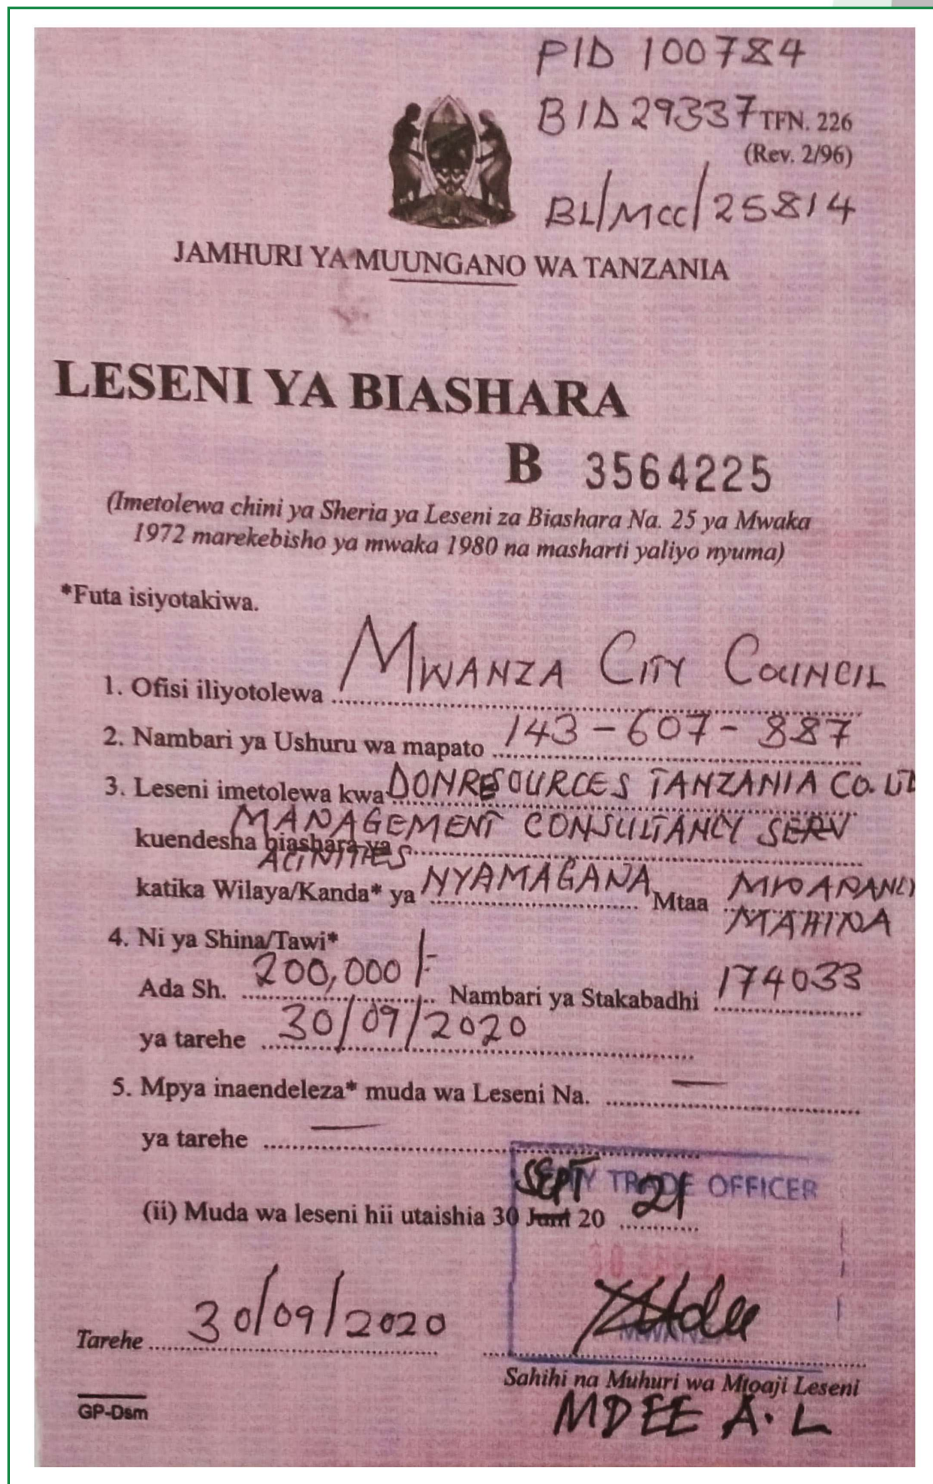 PID 100784
BID 29337 TFN. 226
(Rev. 2/96)
BL/MCC/25814
JAMHURI YA MUUNGANO WA TANZANIA
LESENI YA BIASHARA
B 3564225
(Imetolewa chini ya Sheria ya Leseni za Biashara Na. 25 ya Mwaka
1972 marekebisho ya mwaka 1980 na masharti yaliyo nyuma)
*Futa isiyotakiwa.
1. Ofisi iliyotolewa MWANZA CITY COUNCIL
2. Nambari ya Ushuru wa mapato 143-607-887
3. Leseni imetolewa kwa DONRESOURCES TANZANIA CO. LTD
kuendesha biashara ya MANAGEMENT CONSULTANCY SERV
ACTIVITIES
katika Wilaya/Kanda* ya NYAMAGANA Mtaa
MAHINA
4. Ni ya Shina/Tawi*
Ada Sh. 200,000/- Nambari ya Stakabadhi 174033
ya tarehe 30/09/2020
5. Mpya inaendeleza* muda wa Leseni Na. —
ya tarehe —
TRADE OFFICER
(ii) Muda wa leseni hii utaishia 30 Juni SEPT 20 21
MWANZA
Tarehe 30/09/2020
Sahihi na Muhuri wa Mtoaji Leseni
GP-Dsm
MDEE A. L